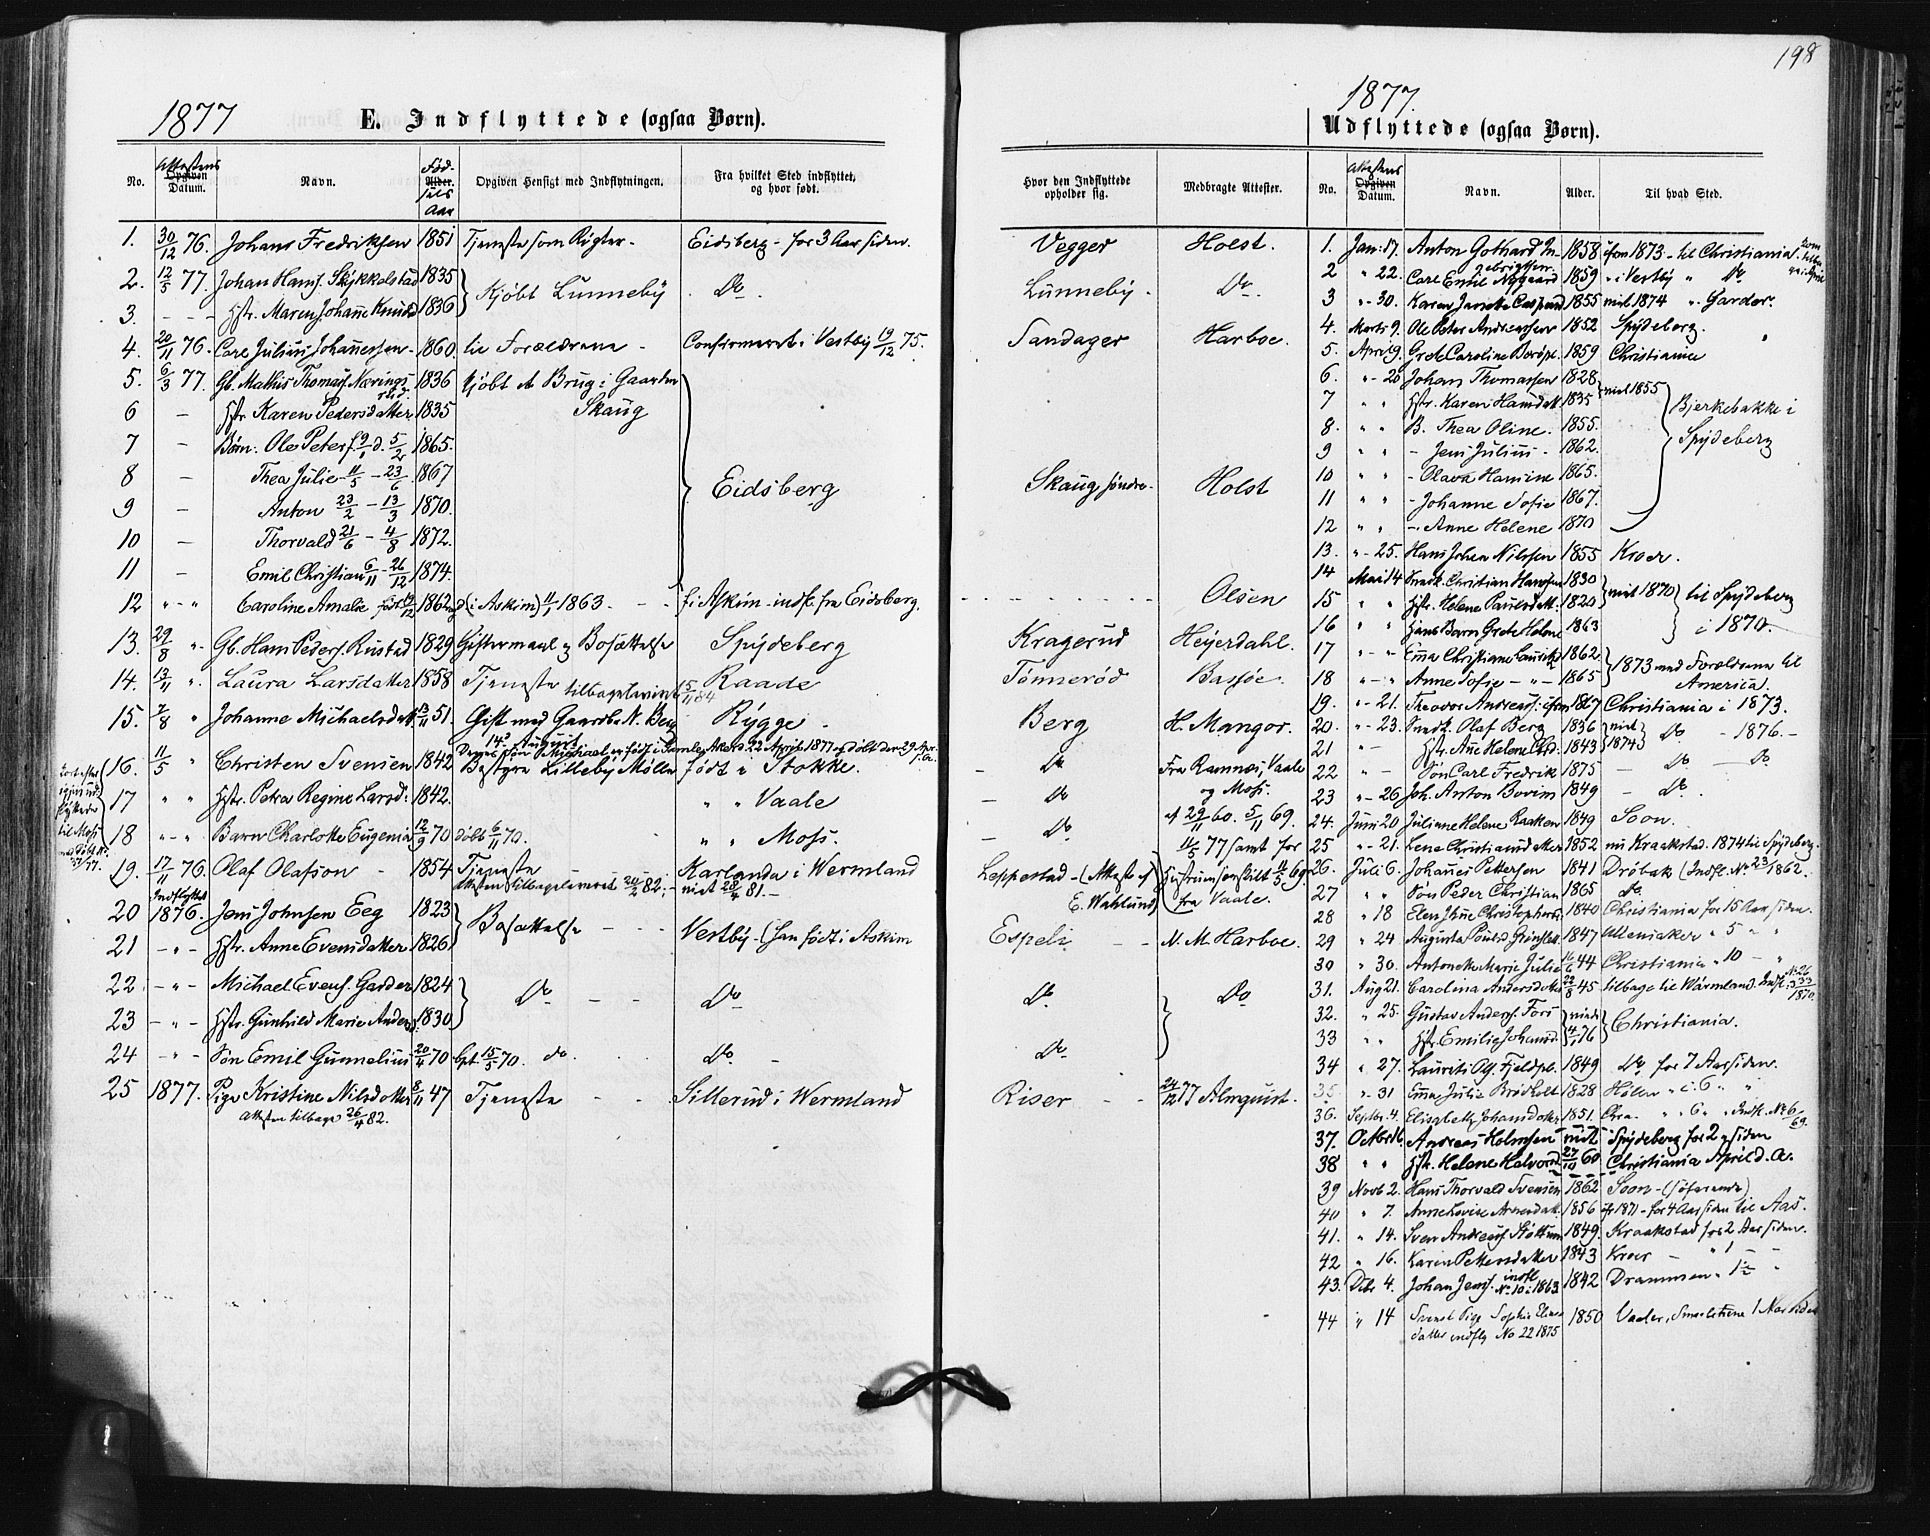 198
1877
E. Indflyttede (ogsaa Børn).
No.
Attestens
Opgiven
Datum.
Navn.
Fød-
Alder.
sels
Aar
Opgiven Hensigt med Indflytningen.
Fra hvilket Sted indflyttet,
og hvor født.
Hvor den Indflyttede
opholder sig.
Medbragte Attester.
1. 30/12 76. Johans Fredriksen 1851 Tjeneste som Røgter - Eidsberg - for 3 Aar siden. Vegger Holst.
2. 12/5 77. Johan Hans. Skikkelstad 1835 Kjøbt Lunneby Do Lunneby Do
3. - - - Hstr. Maren Johane Knuds 1836
4. 20/11 76. Carl Julius Johannessen 1860 til Forældrene - Confirmeret i Vestby 19/12 75. Sandager Harboe.
5. 6/3 77. Gb. Mathis Thomas. Nærings- 1836 kjøbt et Brug i Gaarden
rud
6 - Hstr. Karen Pedersdatter 1835 Skaug
7 - Børn: Ole Peter f. 9/1 d. 5/2 1865.
8 - Thea Julie 11/5 - 23/6 1867
Eidsberg Skaug søndre. Holst
9 - Anton 23/2 - 13/3 1870.
10 - Thorvald 21/6 - 4/8 1872.
11 - Emil Christian 6/11 - 26/12 1874.
12 " - " Caroline Amalie født 1862 (i Askim) 11/1 1863. - - f. i Askim - indfl. fra Eidsberg. Olsen
13. 29/8 " Gb. Hans Peders. Rustad 1829 Giftermaal og Bosættelse Spydeberg Kragerud Heyerdahl.
14. 13/11 " Laura Larsdatter 1858 Tjeneste tilbageleveret 15/11 84 Raade Tønnerød Bassøe.
15. 2/8 " Johanne Michaelsdatt. 13/11 51. Gift med Gaardbr. N. Berg Rygge - Berg H. Mangor.
født i Akers 22 April 1877 døbt den 29 Apr.
16. 11/5 " Christen Svensen 1842 Bestyre Lilleby Mølle født i Stokke. - Do Fra Ramnæs, Vaale
17 " " Hstr. Petra Regine Larsd: 1842. " " Vaale - Do og Moss.
18 " - " Barn Charlotte Eugenia 12/9 70 døbt 6/11 70. " " Moss. - Do af 29/11 60. 5/11 69.
11/5 77 samt for
til Moss
19. 17/11 76. Olaf Olafson - 1854 Tjeneste Karlanda i Wermland Leppestad - (Attest af Hustruens
Attesten tilbageleveret 20/2 82. E. Wahlund) fra Vaale.
Indflyttet
20 1876. Jens Johnsen Eeg 1823 Bosættelse - - - Vestby - (han født i Askim Espeli - - N. M. Harboe.
21 - " - Hstr. Anne Evensdatter 1826
22 - " - Michael Evens. Garder 1824 Do - - Do Do Do
23 - " - Hstr. Gunhild Marie Anders. 1830
24 - " - Søn Emil Gunnelius 20/4 70 dpt. 15/5 70. do. Do - Do
25 1877. Pige Kristine Nilsdatter 8/11 47 Tjeneste - - Sillerud i Wermland Riser - - 24/12 77 Almquist.
Attesten tilbage 26/4 82.
1877.
Udflyttede (ogsaa Børn).
No.
Attestens
Opgiven
Datum.
Navn.
Alder.
Til hvad Sted.
1. Jan: 17. Anton Gothard 1858 1873 - til Christiania
2 " 22. Carl Emil Nygaard 1859 " i Vestby " Do
3 " - 30. Karen Janette 1855 1874 " Garder.
4. Marts 9. Ole Peter Andreassen 1852 Spydeberg.
5. April 9. Grete Caroline 1859 Christiania
6. " - 20 Johan Thomassen 1828
7 " " Hstr. Karen Hansdatt. 1835 1855 Bjerkebakke i
8. " " B. Thea Oline. 1855. Spydeberg
9 " " - Jens Julius - 1862.
10 " " - Olava Hansine 1865.
11 " " - Johanne Sofie 1867.
12 " " - Anne Helene 1870
13. " - 25. Hans Johan Nilssen 1855 Kroer.
14 Mai 14 Christian Hanssen 1830
15 " " Hstr. Helene Paulsdatt. 1820 1870 til Spydeberg
16 " " Barn Grete Helene 1863 i 1870.
17 " - " Emma Christiane 1862. 1873 med Forældrene til
18 " - " Anne Sofie - " - 1865 America.
19. " - 21. Theodor Andreas. 1867 Christiania i 1873.
20. " - 23. Snedk. Olaf Berg 1836 Do - 1876. -
21 " - Hstr. Ane Helene 1843 1874
22 " - Søn Carl Fredrik 1875 - Do - Do
23 " - 26 Joh. Anton Bovim 1849 - Do.
24. Juni 20 Juliane Helene 1849 Soon.
25 " - 21. Lene 1852 Kraakstad. 1874 til Spydeberg.
26. Juli 6. Johannes Pettersen 1841 Drøbak (Indfl. No. 23 1862.
27 " " Søn Peder Christian 1865 do.
28 " 18 Elen 1840 Christiania for 15 Aar siden.
29 " 24 Augusta 1847 Ullensaker " 5 " "
30 " 30. Antonette Marie Julie 44 Christiania " 10 - "
31. Aug 21. Carolina Andersdatter 22/8 45 tilbage til Wärmland. Indfl. No. 1870.
32. " 25. Gustav Anders. Fors Christiania.
33 " " Hstr. Emilie 76
34 " 27. Laurits 1849 Do for 7 Aar siden.
35 " 31 Emma Julie 1828 Hølen " c. 6 " "
36. Septbr. 4. Elisabeth Johansdatter 1851. Chra. " " 6 " " Indfl. No 6/69.
37. Octbr 16. Andreas Holmsen Spydeberg for 2 siden
38 " " Hstr. Helene Halvorsd. 60 Christiania April d. A.
39 Novb 2. Hans Thorvald Svensen 1862 Soon - (søfarende)
40 " 7. Anne Lovise 1856 1871 - for 4 Aar siden til Aas.
41. " 14. Sven Andreas. 1849. Kraakstad for 2 Aar siden.
42 " 16. Karen Pettersdatter 1843 Kroer - " 1 - -
43. Dcbr 4. Johan Jens. indfl. No 10 i 1863 1842 Drammen "
44 " 14 Svensk Pige Sophia 1850 Vaaler, 1 Aar siden
datter indfly No 22 1875